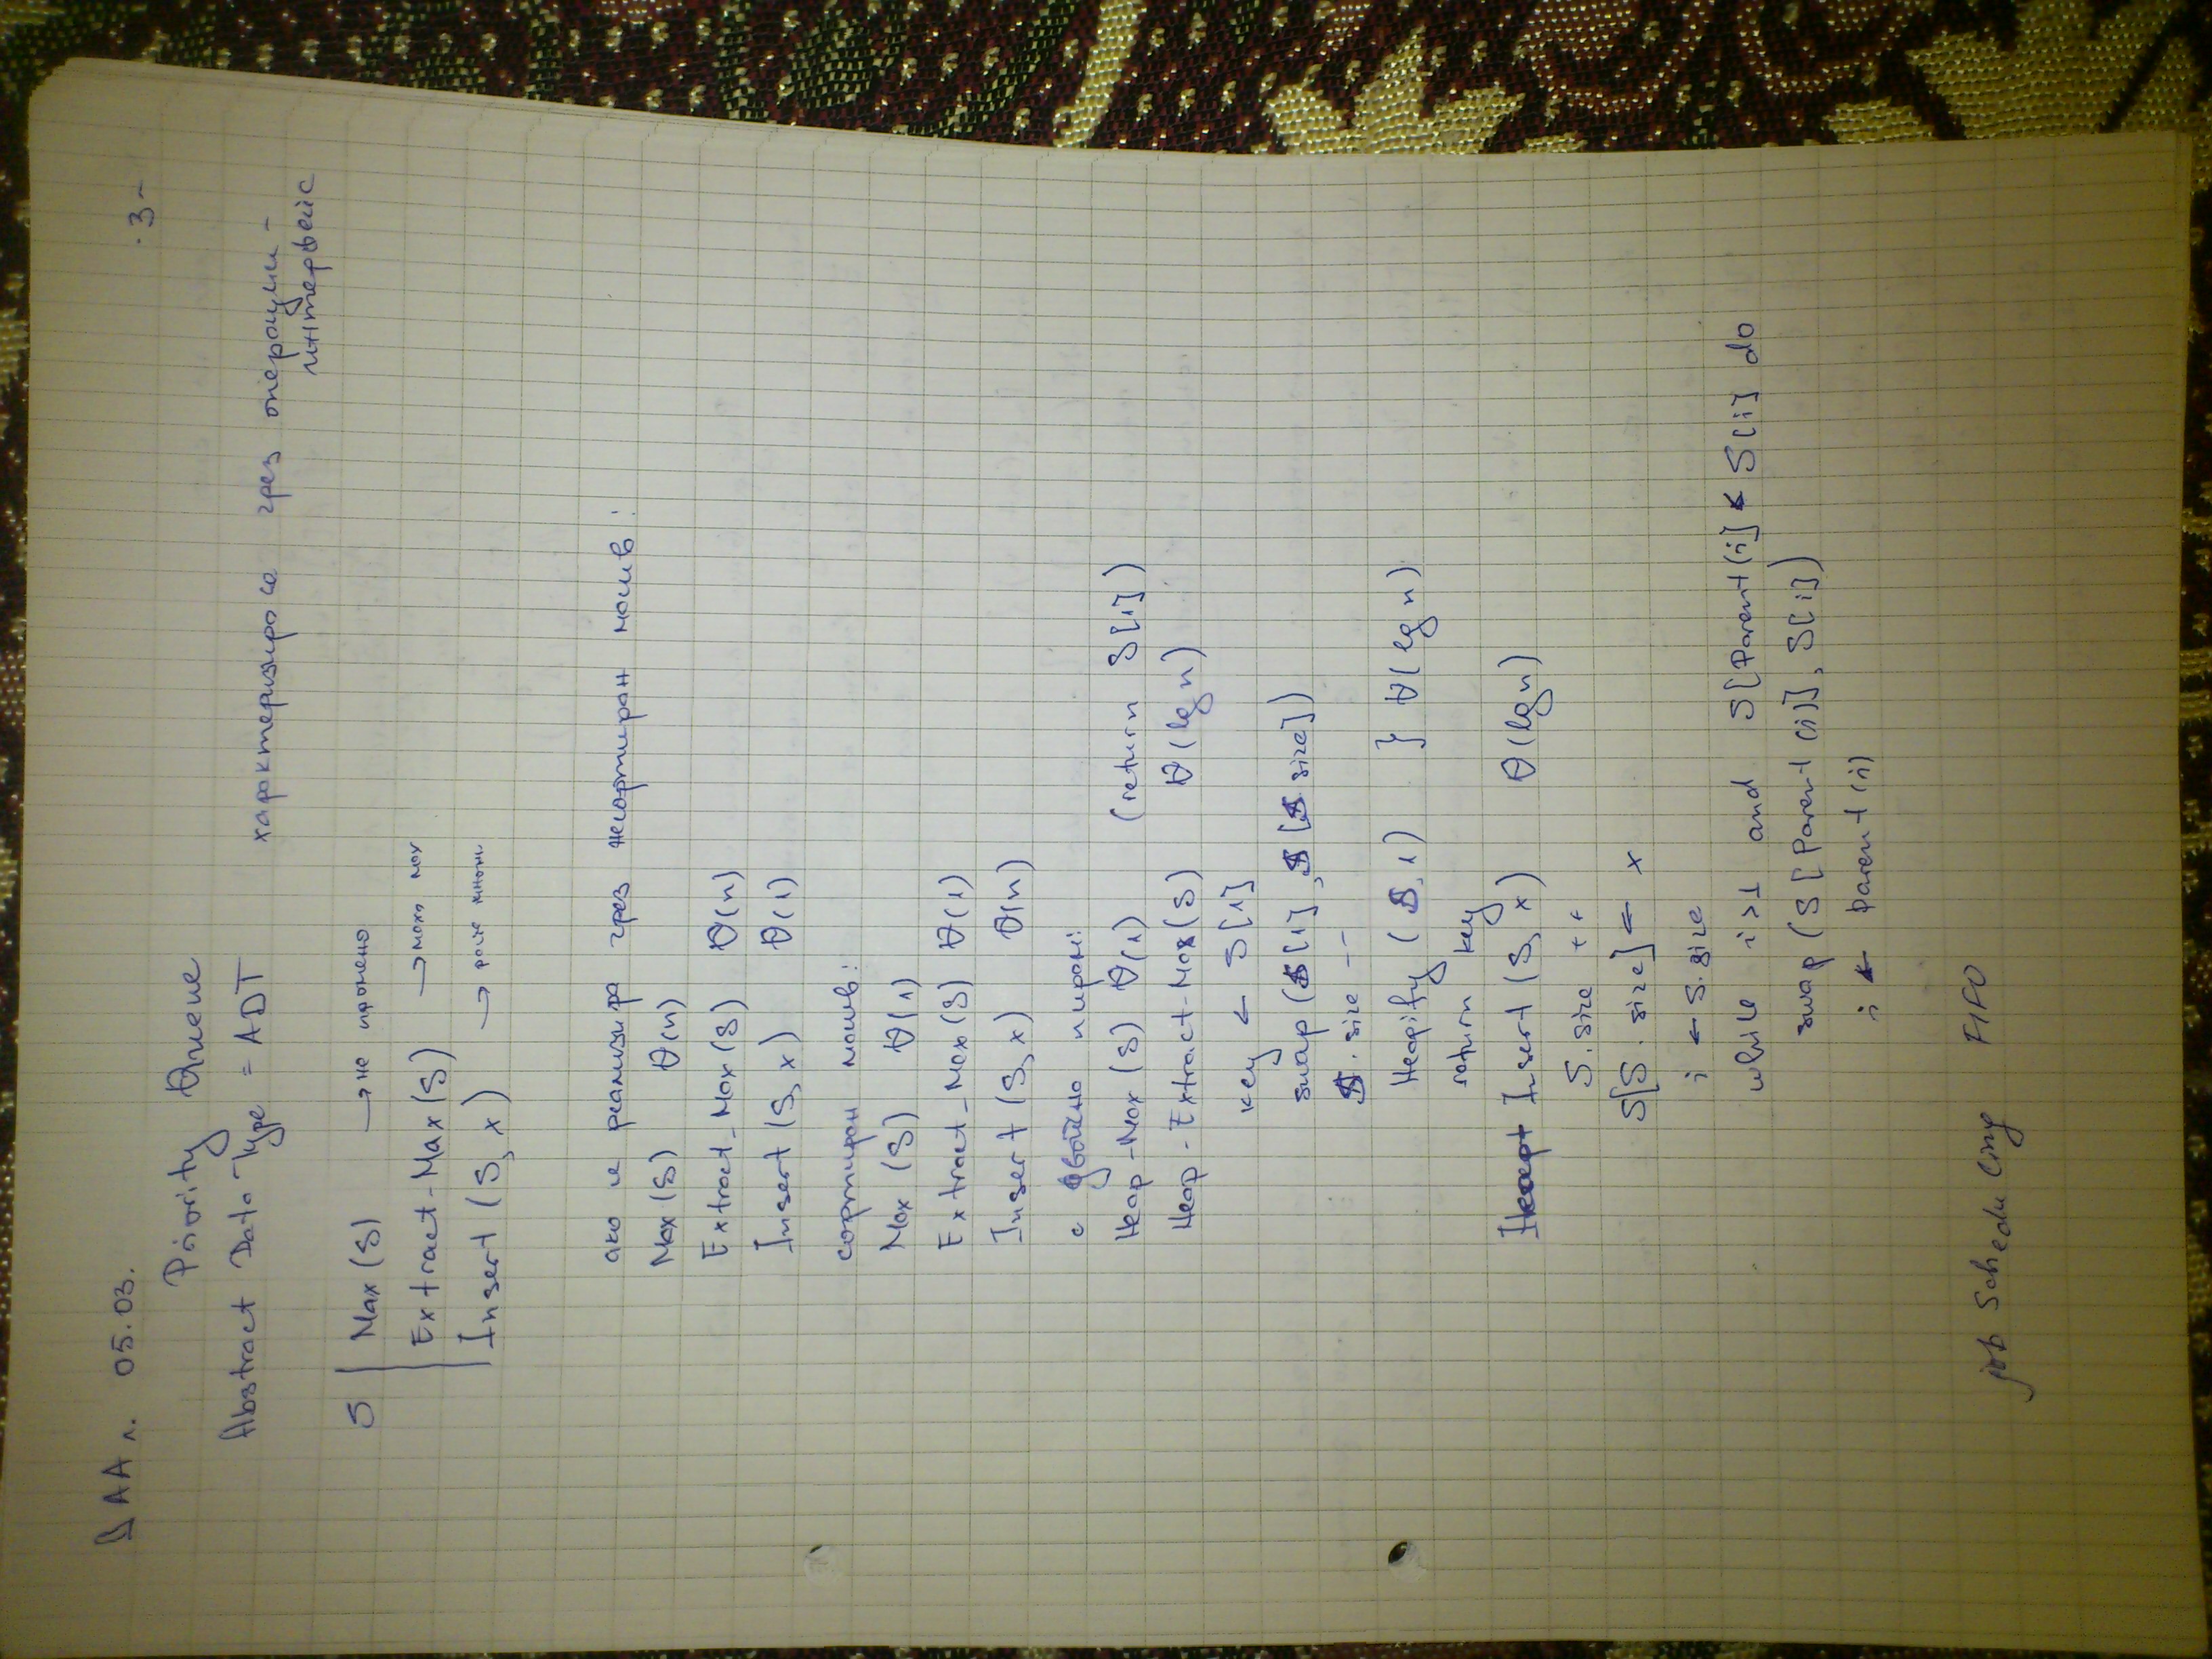 ДАА л. 05.03. -3-
Priority Queue
Abstract Data Type = ADT характеризира се чрез операции -
интерфейс
S Max (S) → не променено
Extract-Max (S) → маха max
Insert (S, x) →
ако се реализира чрез несортиран масив:
Max (S) Θ(n)
Extract_Max (S) Θ(n)
Insert (S, x) Θ(1)
сортиран масив:
Max (S) Θ(1)
Extract_Max (S) Θ(1)
Insert (S, x) Θ(n)
с двойно пирам:
Heap-Max (S) Θ(1) (return S[1])
Heap-Extract-Max (S) Θ(lg n)
key ← S[1]
swap (S[1], S[S.size])
S.size --
Heapify (S, 1) } Θ(lg n)
return key
Insert (S, x) Θ(lg n)
S.size ++
S[S.size] ← x
i ← S.size
while i>1 and S[Parent(i] < S[i] do
swap (S[Parent(i)], S[i])
i ← Parent(i)
job Scheduling FIFO